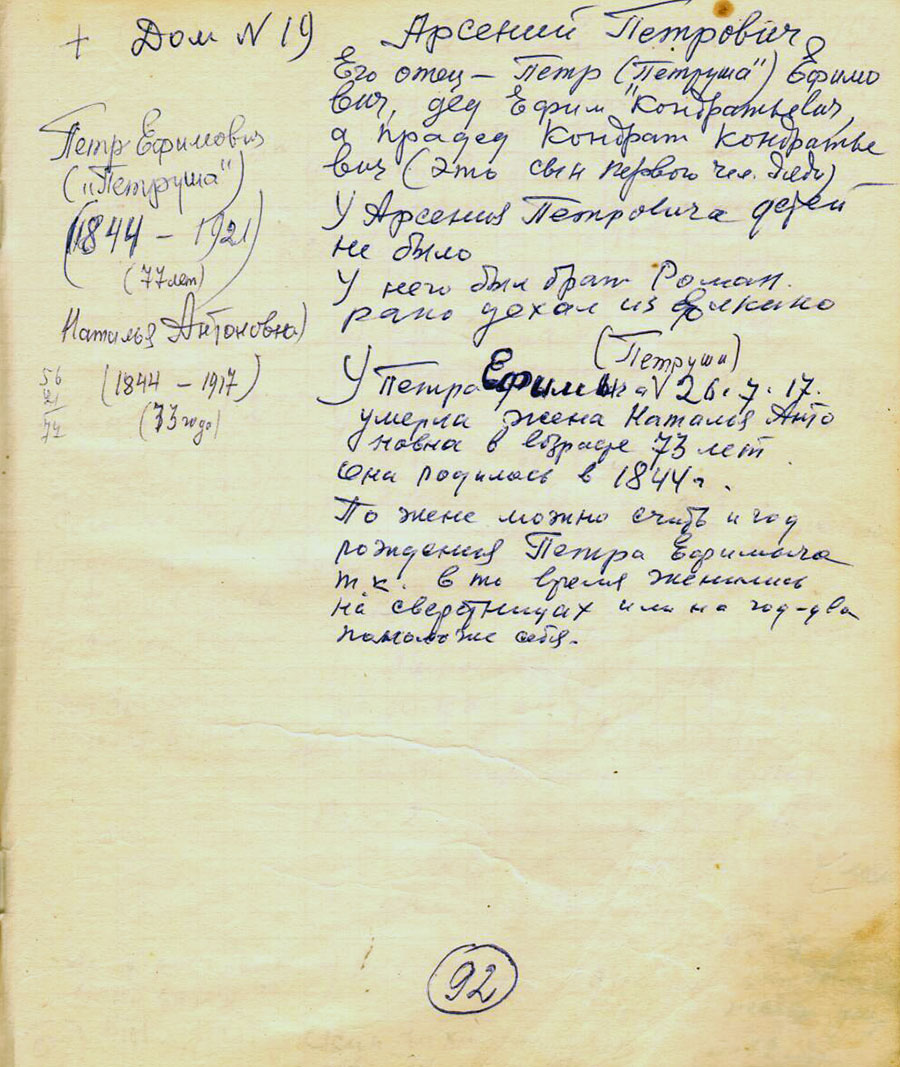 + Дом N 19
Петр Ефимович
("Петруша")
(1844 – 1921)
(77 лет)
Наталья Антоновна)
(1844 – 1917)
(73 года)
56
21
77
Арсений Петрович
Его отец – Петр ("Петруша") Ефимо
вич, дед Ефим Кондратьевич,
а прадед Кондрат Кондратье
вич (это сын первого чел.
У Арсения Петровича детей
не было
У него был брат Роман.
рано уехал из
(Петруши)
У Петра Ефимыча 26.7.17.
умерла жена Наталья Анто
новна в возрасте 73 лет
Она родилась в 1844 г.
По жене можно счит. и год
рождения Петра Ефимыча
т.к. в то время женились
на сверстницах или на год-два
помоложе себя.
92